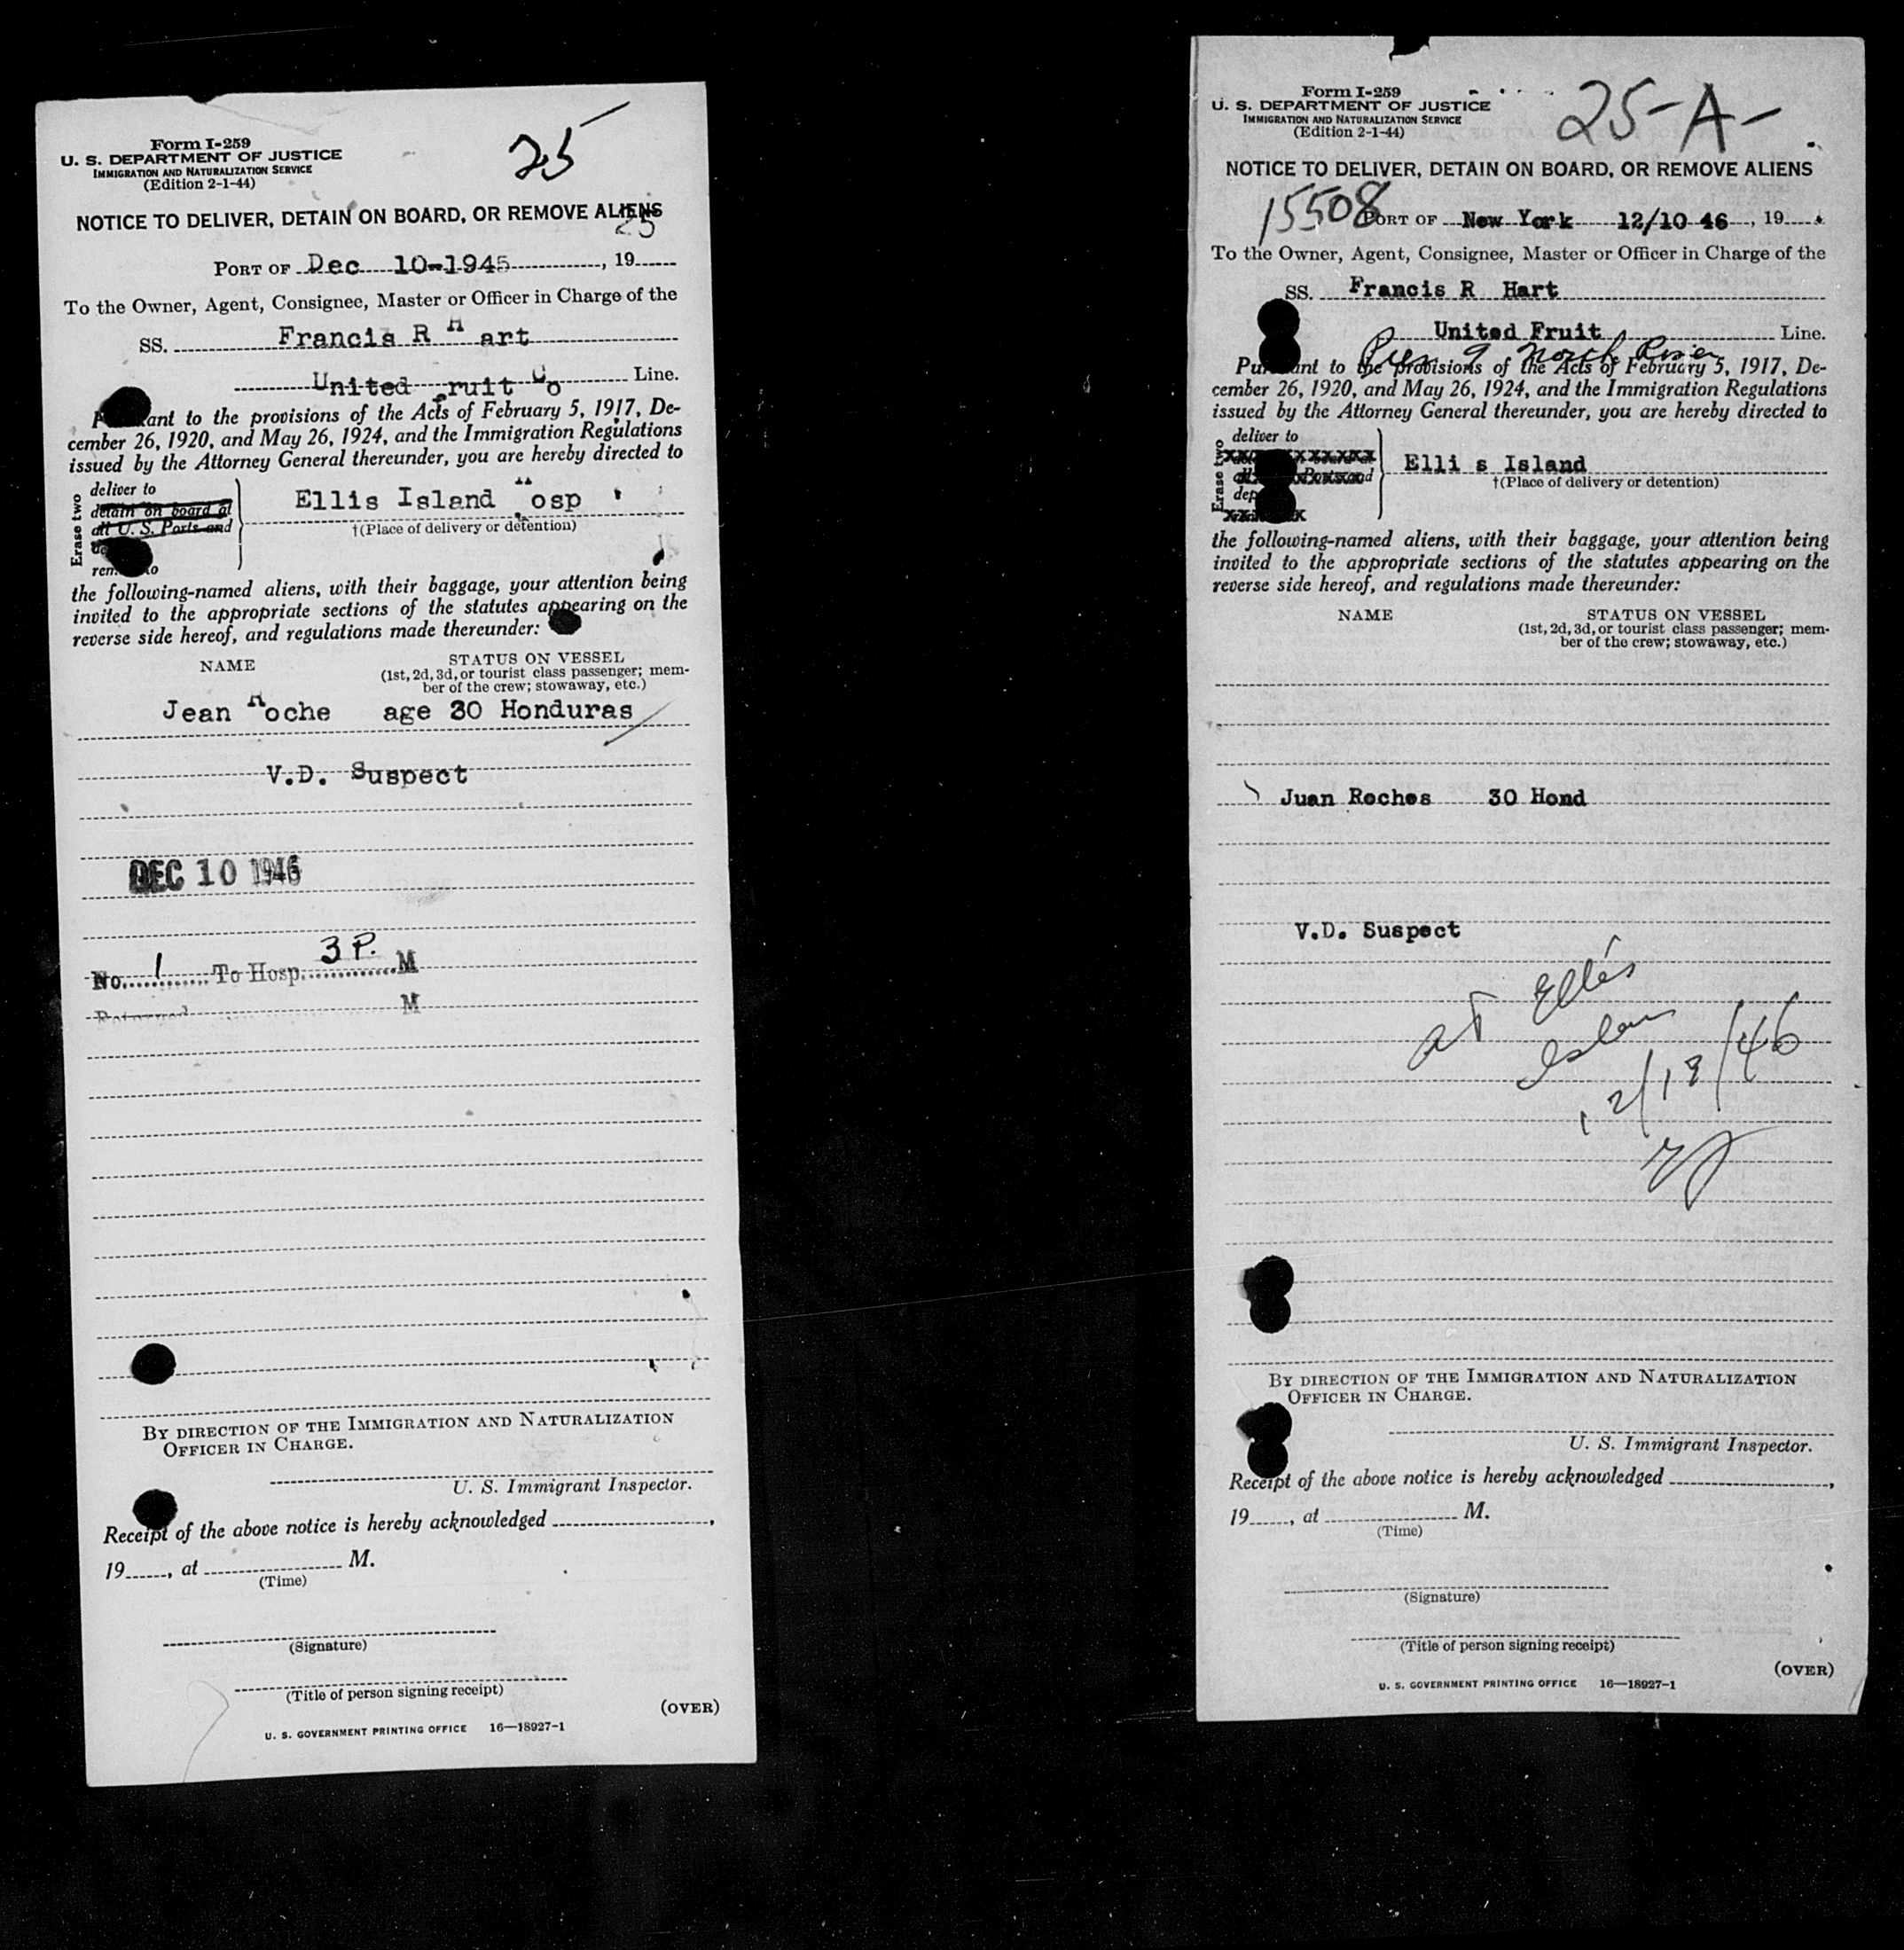 Form I-259
U. S. DEPARTMENT OF JUSTICE
IMMIGRATION AND NATURALIZATION SERVICE
(Edition 2-1-44)
25
NOTICE TO DELIVER, DETAIN ON BOARD, OR REMOVE ALIENS
25
PORT OF Dec 10-1945, 19
To the Owner, Agent, Consignee, Master or Officer in Charge of the
SS. Francis R Hart
United ruit Co Line.
ant to the provisions of the Acts of February 5, 1917, De-
cember 26, 1920, and May 26, 1924, and the Immigration Regulations
issued by the Attorney General thereunder, you are hereby directed to
Erase two
deliver to
detain on board at
all U. S. Ports and
Ellis Island Hosp
†(Place of delivery or detention)
the following-named aliens, with their baggage, your attention being
invited to the appropriate sections of the statutes appearing on the
reverse side hereof, and regulations made thereunder:
NAME
STATUS ON VESSEL
(1st, 2d, 3d, or tourist class passenger; mem-
ber of the crew; stowaway, etc.)
Jean Roche age 30 Honduras
V.D. Suspect
DEC 10 1946
No. 1 To Hosp. 3 P. M
Returned M
BY DIRECTION OF THE IMMIGRATION AND NATURALIZATION
OFFICER IN CHARGE.
U. S. Immigrant Inspector.
Receipt of the above notice is hereby acknowledged ,
19 , at M.
(Time)
(Signature)
(Title of person signing receipt)
(OVER)
U. S. GOVERNMENT PRINTING OFFICE 16—18927-1
Form I-259
U. S. DEPARTMENT OF JUSTICE
IMMIGRATION AND NATURALIZATION SERVICE
(Edition 2-1-44)
25-A-
NOTICE TO DELIVER, DETAIN ON BOARD, OR REMOVE ALIENS
15508
PORT OF New York 12/10 46, 19
To the Owner, Agent, Consignee, Master or Officer in Charge of the
SS. Francis R Hart
United Fruit Line.
Pier 9 North River
Pursuant to the provisions of the Acts of February 5, 1917, De-
cember 26, 1920, and May 26, 1924, and the Immigration Regulations
issued by the Attorney General thereunder, you are hereby directed to
Erase two
deliver to
Elli s Island
†(Place of delivery or detention)
the following-named aliens, with their baggage, your attention being
invited to the appropriate sections of the statutes appearing on the
reverse side hereof, and regulations made thereunder:
NAME
STATUS ON VESSEL
(1st, 2d, 3d, or tourist class passenger; mem-
ber of the crew; stowaway, etc.)
Juan Roches 30 Hond
V.D. Suspect
at Ellis
Islan
BY DIRECTION OF THE IMMIGRATION AND NATURALIZATION
OFFICER IN CHARGE.
U. S. Immigrant Inspector.
Receipt of the above notice is hereby acknowledged ,
19 , at M.
(Time)
(Signature)
(Title of person signing receipt)
(OVER)
U. S. GOVERNMENT PRINTING OFFICE 16—18927-1